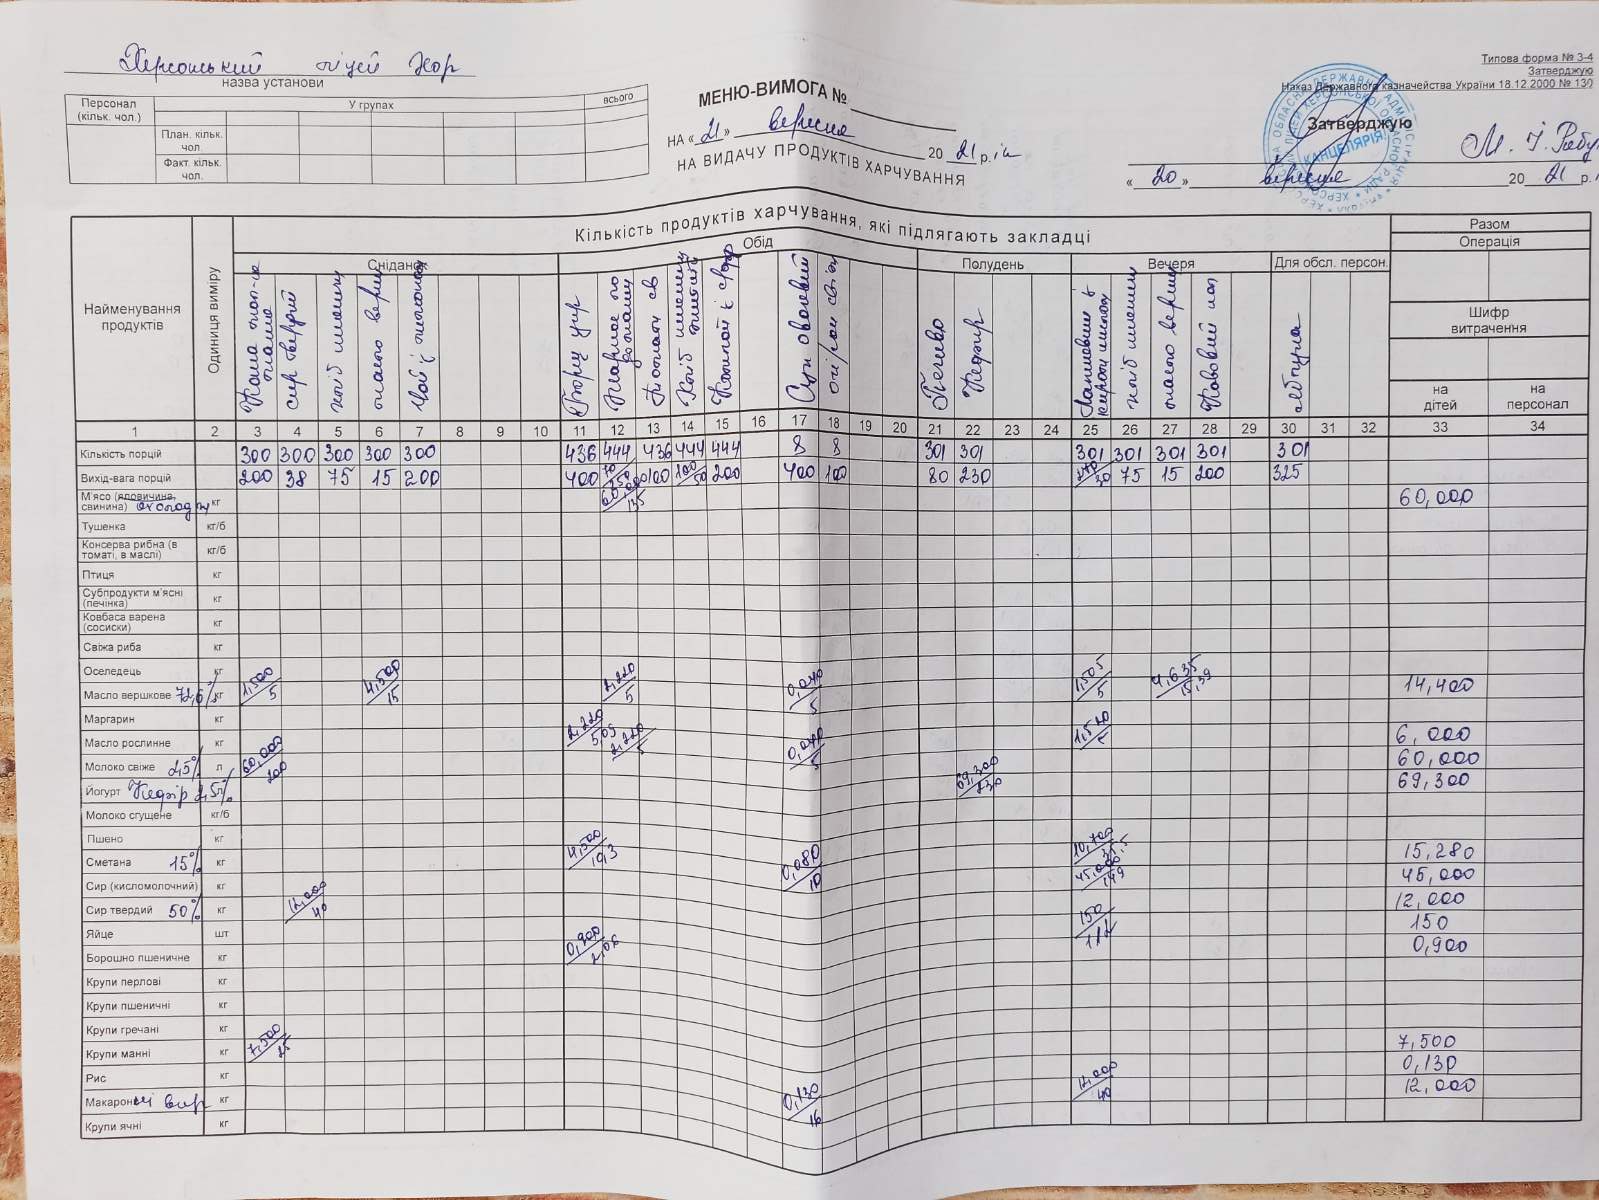 Херсонський ліцей
назва установи
Типова форма № З-4
Затверджую
Наказ Державного казначейства України 18.12.2000 № 130
Персонал (кільк. чол.)
У групах
всього
План. кільк. чол.
Факт. кільк. чол.
МЕНЮ-ВИМОГА №
НА «21» вересня 2021 р.
НА ВИДАЧУ ПРОДУКТІВ ХАРЧУВАННЯ
Затверджую
КАНЦЕЛЯРІЯ
«20» вересня 2021 р.
Найменування продуктів
Одиниця виміру
Кількість продуктів харчування, які підлягають закладці
Разом
Операція
Сніданок
Обід
Полудень
Вечеря
Для обсл. персон.
Шифр витрачення
на дітей
на персонал
сир твердий
масло верш
Борщ укр
Жарке по домашн
Суп овочевий
Печиво
Кефір
масло верш
1 2 3 4 5 6 7 8 9 10 11 12 13 14 15 16 17 18 19 20 21 22 23 24 25 26 27 28 29 30 31 32 33 34
Кількість порцій 300 300 300 300 300 436 444 436 444 444 8 8 301 301 301 301 301 301 301
Вихід-вага порцій 200 38 75 15 200 400 100 200 400 100 80 230 75 15 200 325
М'ясо (яловичина, свинина) кг 60,000
Тушенка кг/б
Консерва рибна (в томаті, в маслі) кг/б
Птиця кг
Субпродукти м'ясні (печінка) кг
Ковбаса варена (сосиски) кг
Свіжа риба кг
Оселедець кг
Масло вершкове 72,6% кг 1,500/5 4,500/15 2,220/5 0,040/5 1,505/5 4,635/15,39 14,400
Маргарин кг
Масло рослинне кг 2,220/5,09 2,220/5 0,040/5 1,520/5 6,000
Молоко свіже 2,5% л 60,000/200 60,000
Йогурт Кефір 2,5% 69,300/230 69,300
Молоко сгущене кг/б
Пшено кг
Сметана 15% кг 4,500/10,3 0,080/10 10,700/35,5 15,280
Сир (кисломолочний) кг 45,000/149 45,000
Сир твердий 50% кг 12,000/40 12,000
Яйце шт 150/1/2 150
Борошно пшеничне кг 0,900/2,06 0,900
Крупи перлові кг
Крупи пшеничні кг
Крупи гречані кг
Крупи манні кг 7,500/25 7,500
Рис кг 0,130
Макаронні вир кг 0,130/16 12,000/40 12,000
Крупи ячні кг